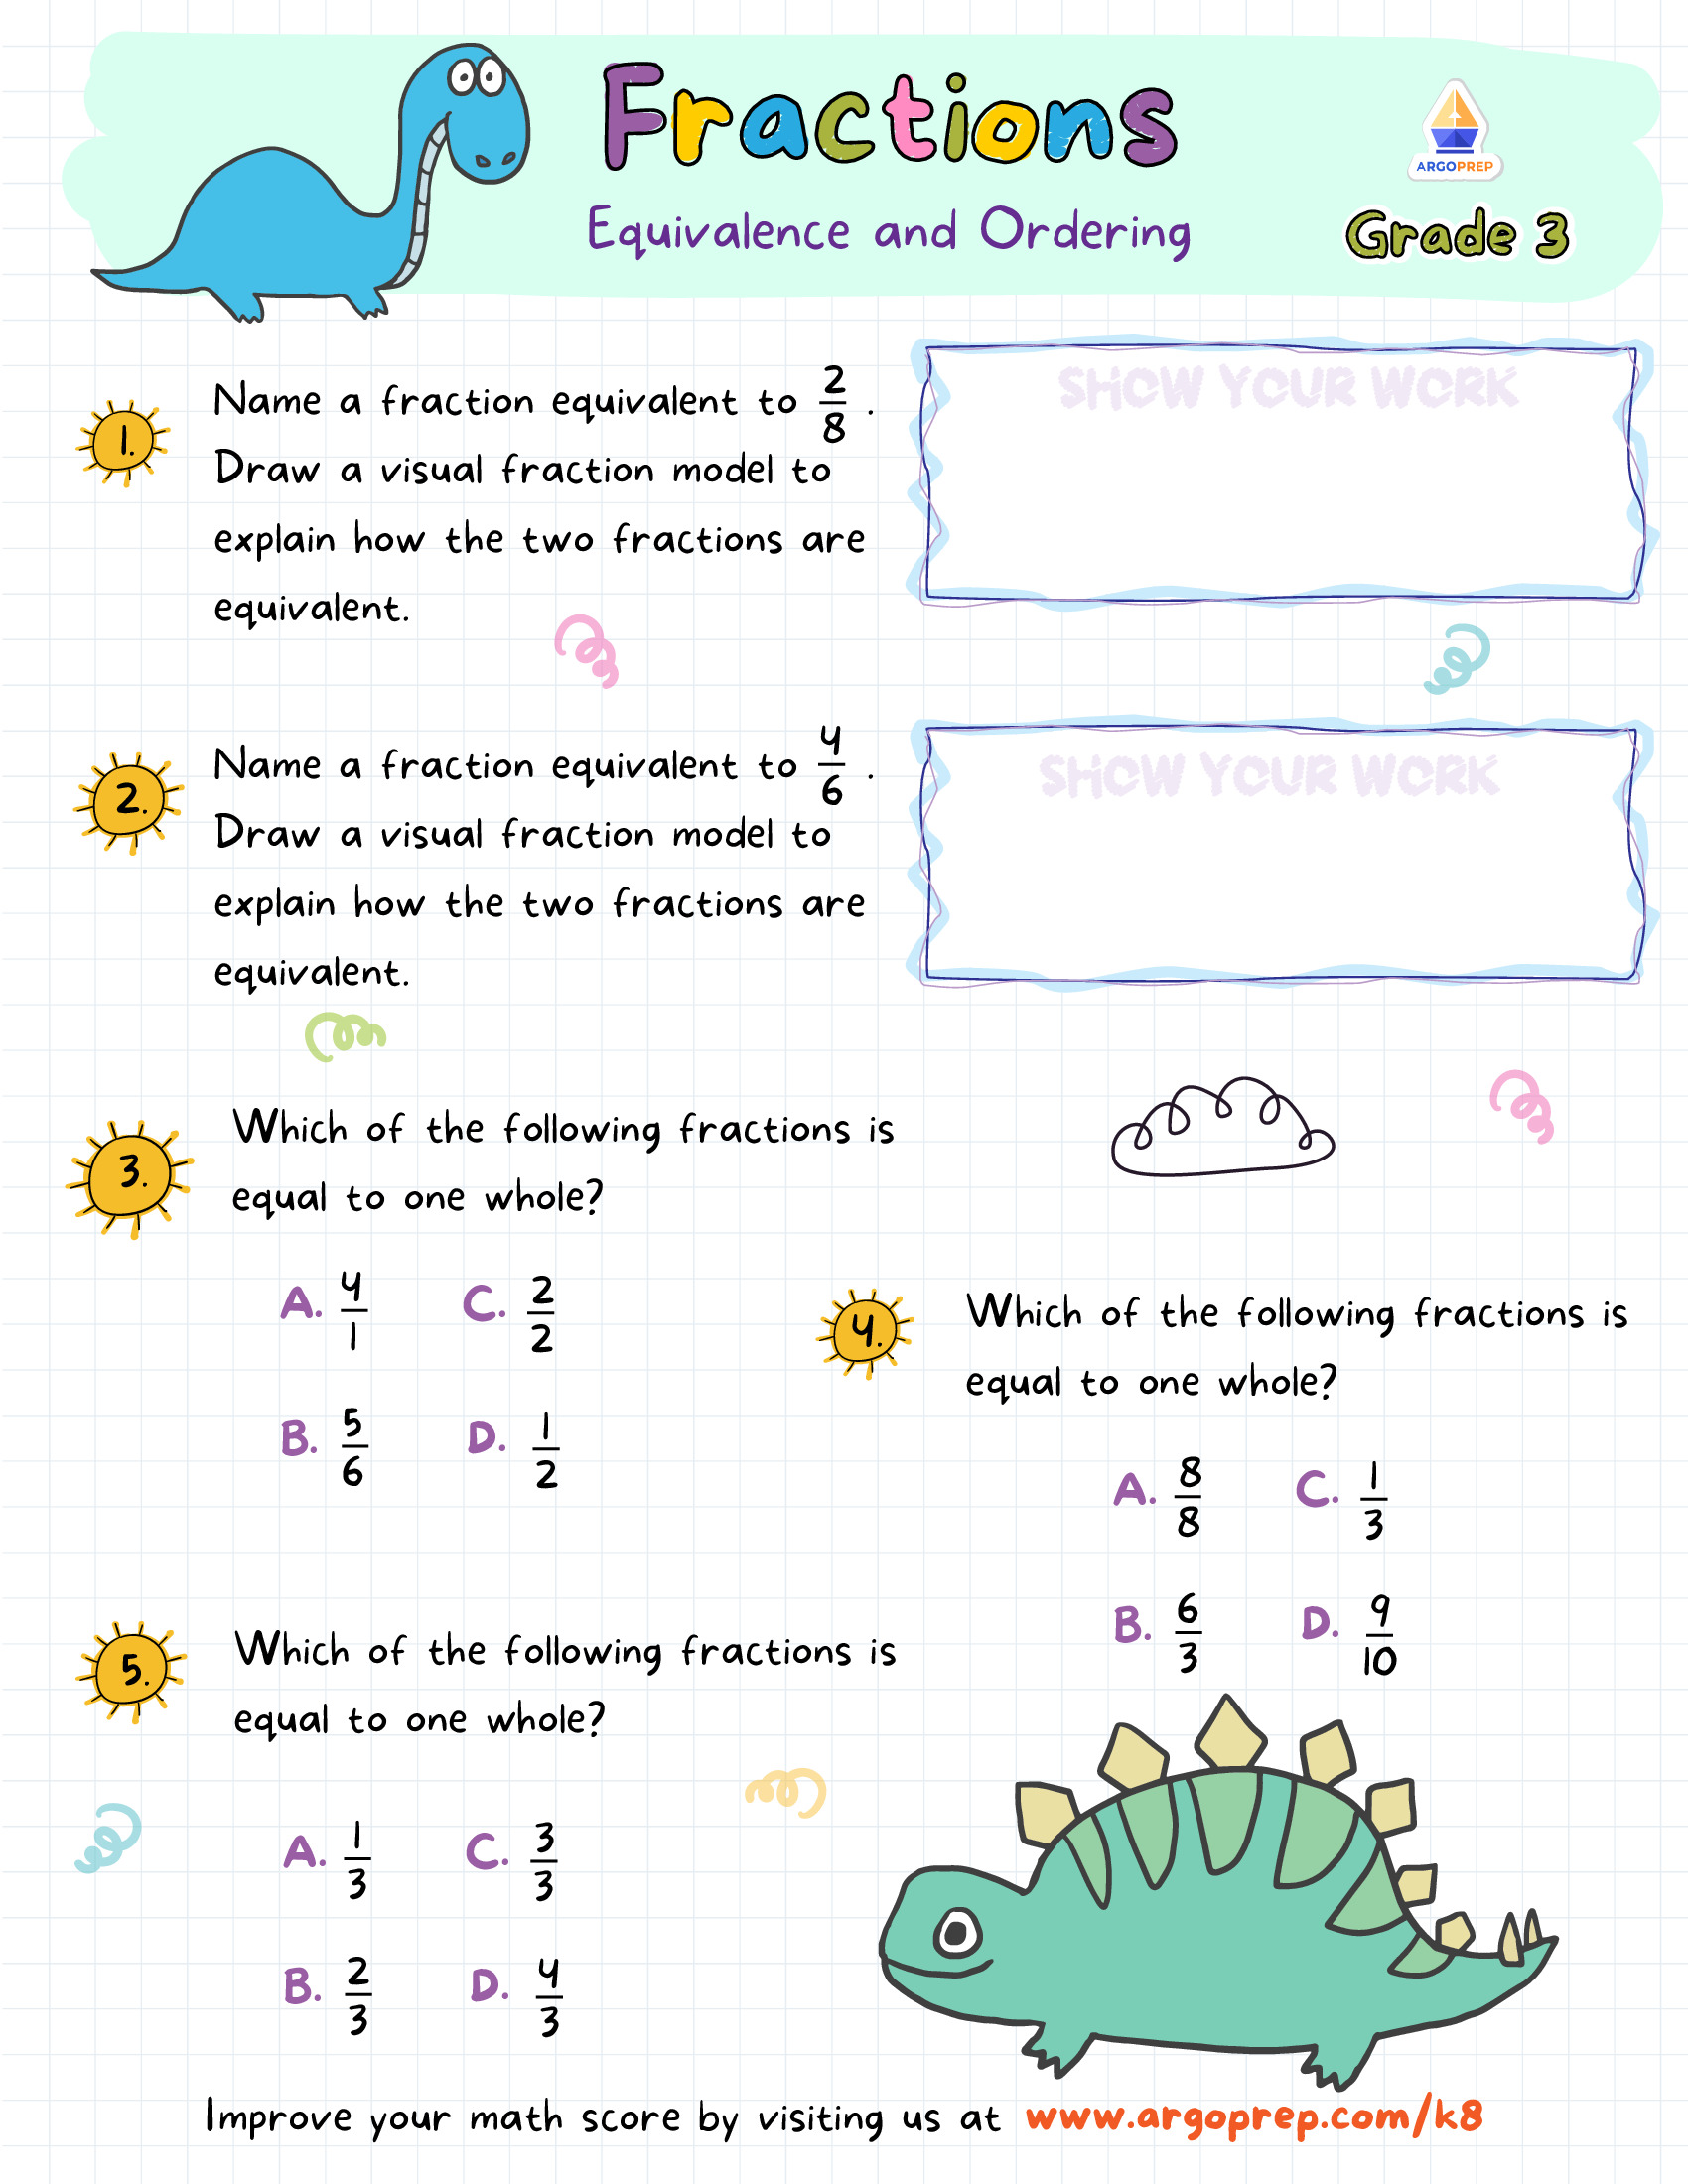 Fractions
Equivalence and Ordering
ARGOPREP
Grade 3
1.
Name a fraction equivalent to 2/8 .
Draw a visual fraction model to
explain how the two fractions are
equivalent.
SHOW YOUR WORK
2.
Name a fraction equivalent to 4/6 .
Draw a visual fraction model to
explain how the two fractions are
equivalent.
SHOW YOUR WORK
3.
Which of the following fractions is
equal to one whole?
A. 4/1 C. 2/2
B. 5/6 D. 1/2
4.
Which of the following fractions is
equal to one whole?
A. 8/8 C. 1/3
B. 6/3 D. 9/10
5.
Which of the following fractions is
equal to one whole?
A. 1/3 C. 3/3
B. 2/3 D. 4/3
Improve your math score by visiting us at www.argoprep.com/k8